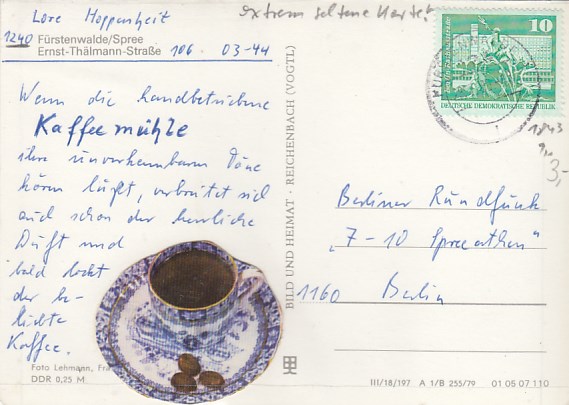 Lore Hoppenheit
extrem seltene Karte!
1240 Fürstenwalde/Spree
Ernst-Thälmann-Straße 106. 03-44
Wenn die handbetriebene
Kaffeemühle
ihre unverkennbaren Töne
hören läßt, verbreitet sich
auch schon der herrliche
Duft und
bald lockt
der be-
liebte
Kaffee.
Foto Lehmann, Fra
DDR 0,25 M
BILD UND HEIMAT · REICHENBACH (VOGTL)
10
DEUTSCHE DEMOKRATISCHE REPUBLIK
1843
3,-
Berliner Rundfunk
„7-10 Spreeathen"
1160 Berlin
III/18/197 A 1/B 255/79 01 05 07 110